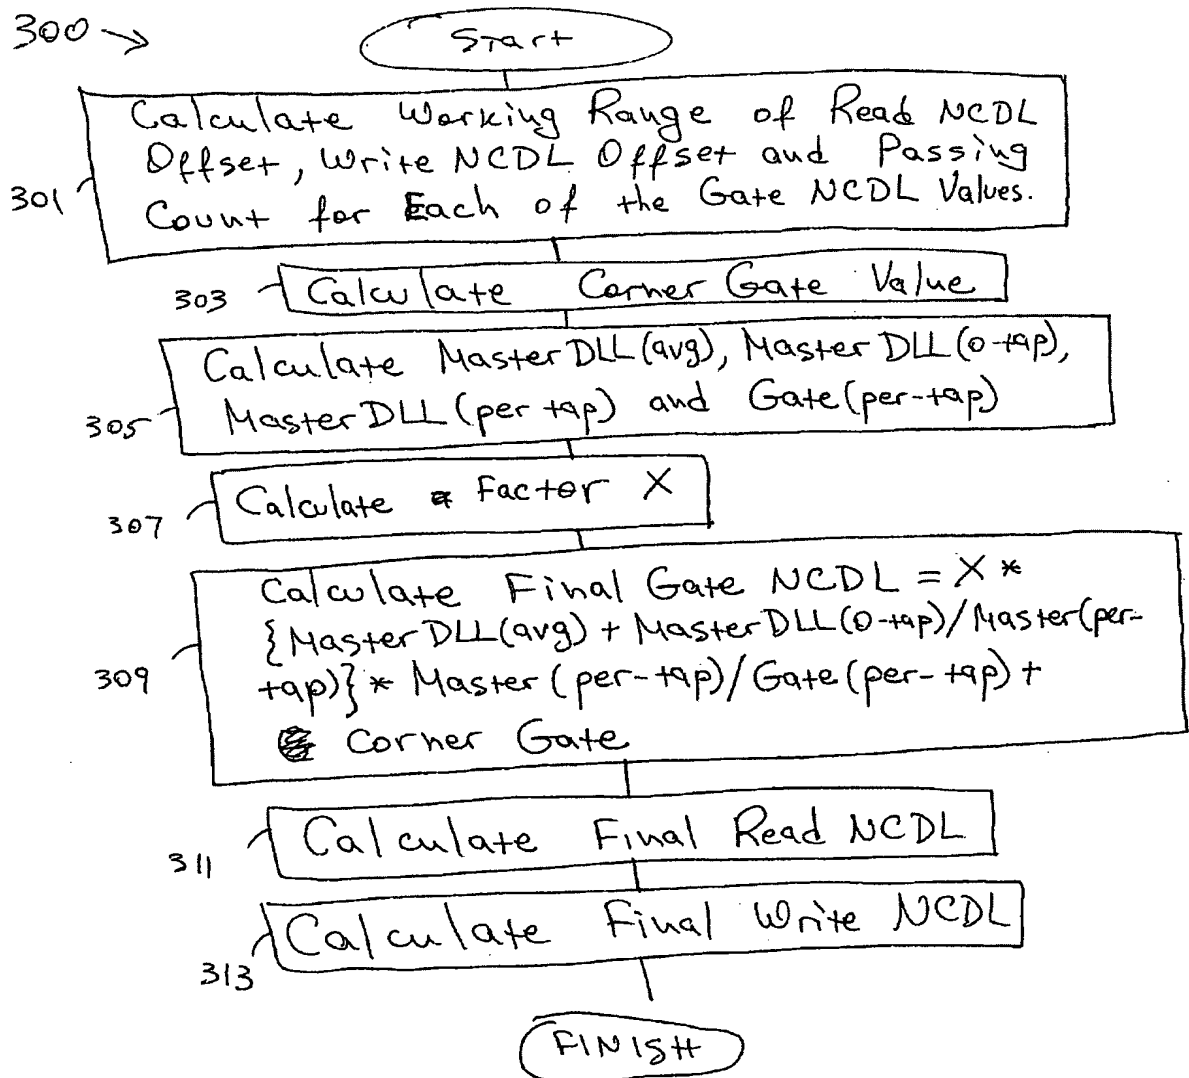 300
Start
Calculate Working Range of Read NCDL
Offset, Write NCDL Offset and Passing
301
Count for Each of the Gate NCDL Values.
303
Calculate Corner Gate Value
Calculate MasterDLL(avg), MasterDLL(0-tap),
305
MasterDLL(per tap) and Gate(per-tap)
307
Calculate Factor X
Calculate Final Gate NCDL = X *
{MasterDLL(avg) + MasterDLL(0-tap)/Master(per-
309
tap)} * Master (per-tap)/Gate(per-tap) +
Corner Gate
311
Calculate Final Read NCDL
Calculate Final Write NCDL
313
FINISH